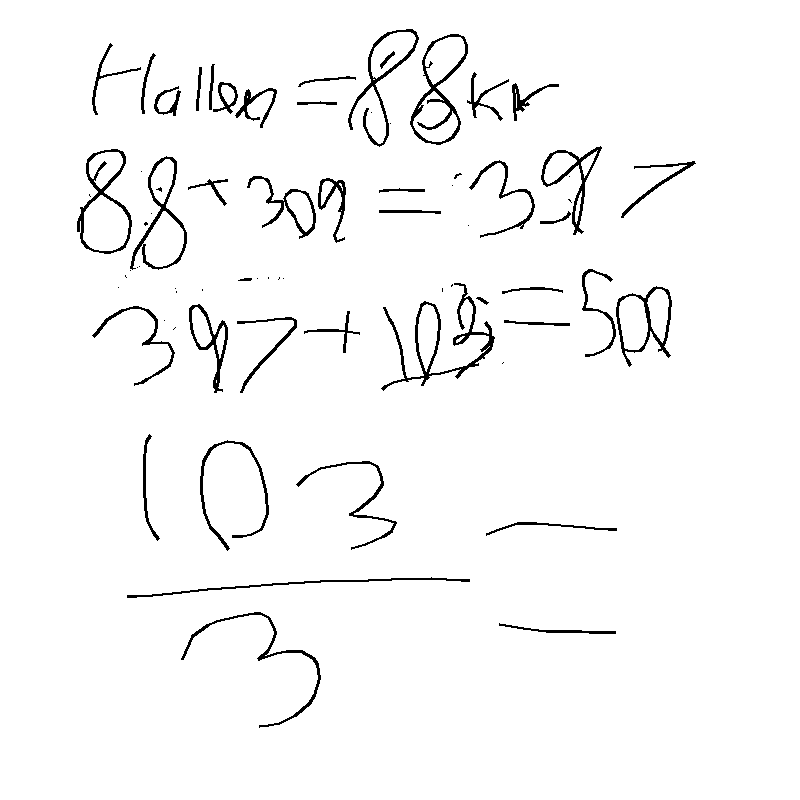 Hallen = 88 kr
88 + 309 = 397
397 + 103 = 500
103
3
=